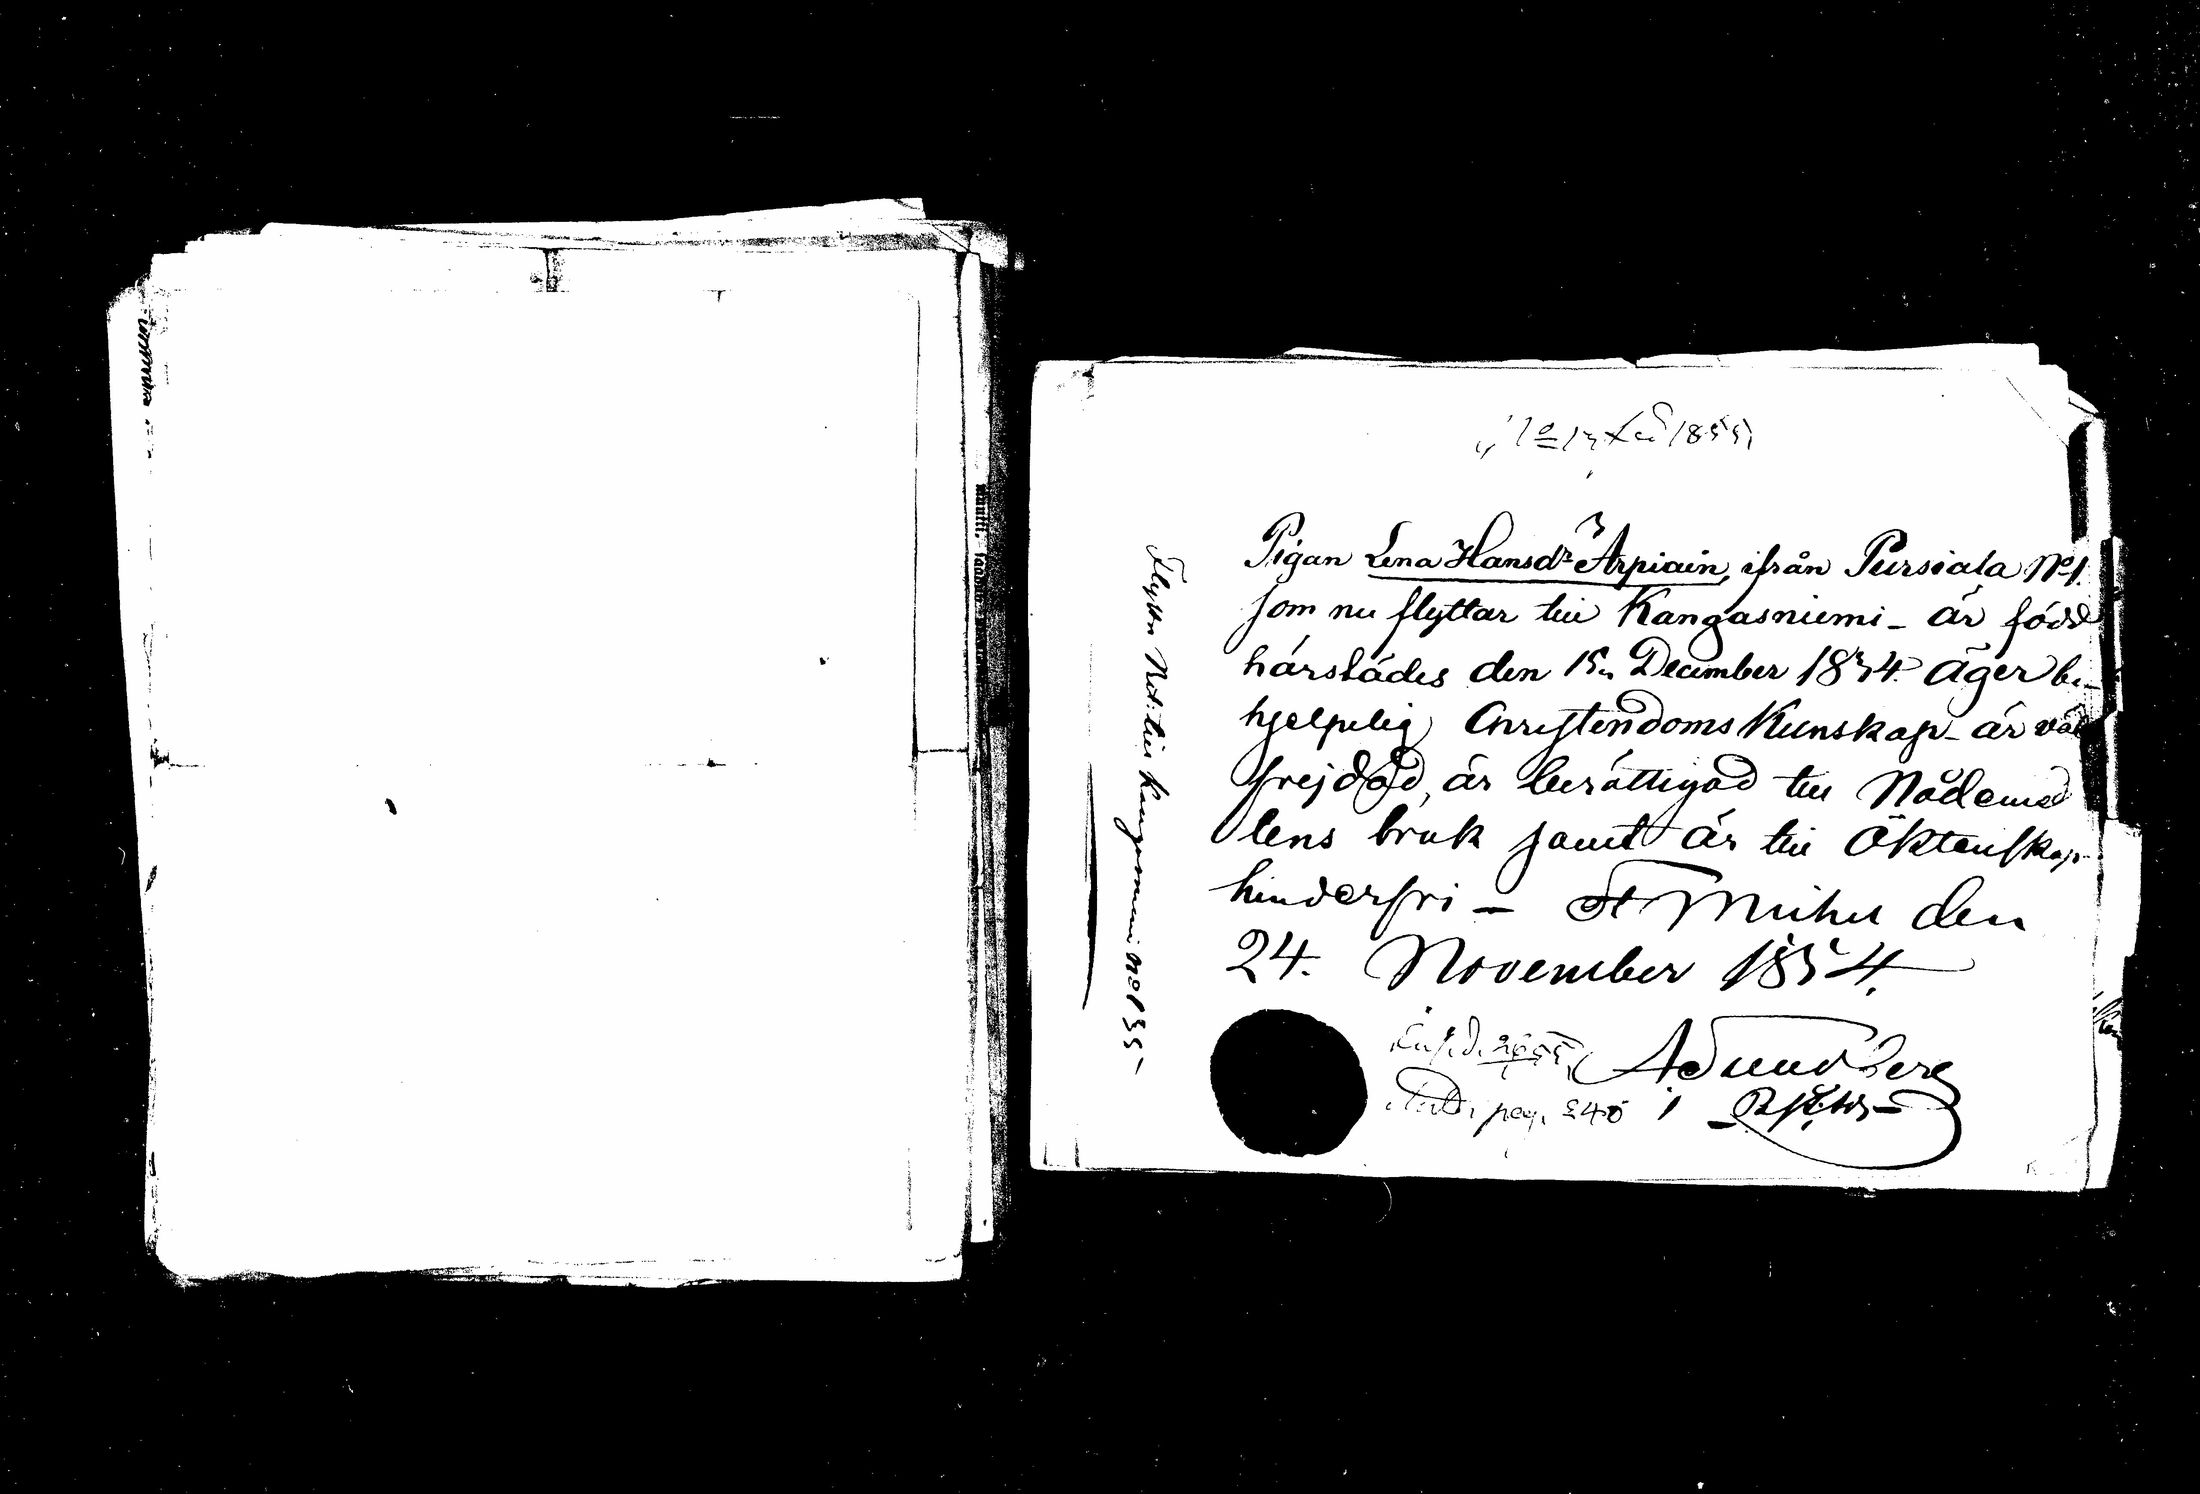 Pigan Lena Hansdr Arpiain, ifrån Pursiala No 1.
som nu flyttar till Kangasniemi - är född
härstädes den 15 December 1834. Äger be-
hjelpelig Christendoms Kunskap - är väl
frejdad, är berättigad till Nådemed
lens bruk samt är till Äktenskap
hinderfri - St Michel den
24. November 1854.
A Sundberg
pag. 240
Flyttn Bet. till Kangasniemi No 135